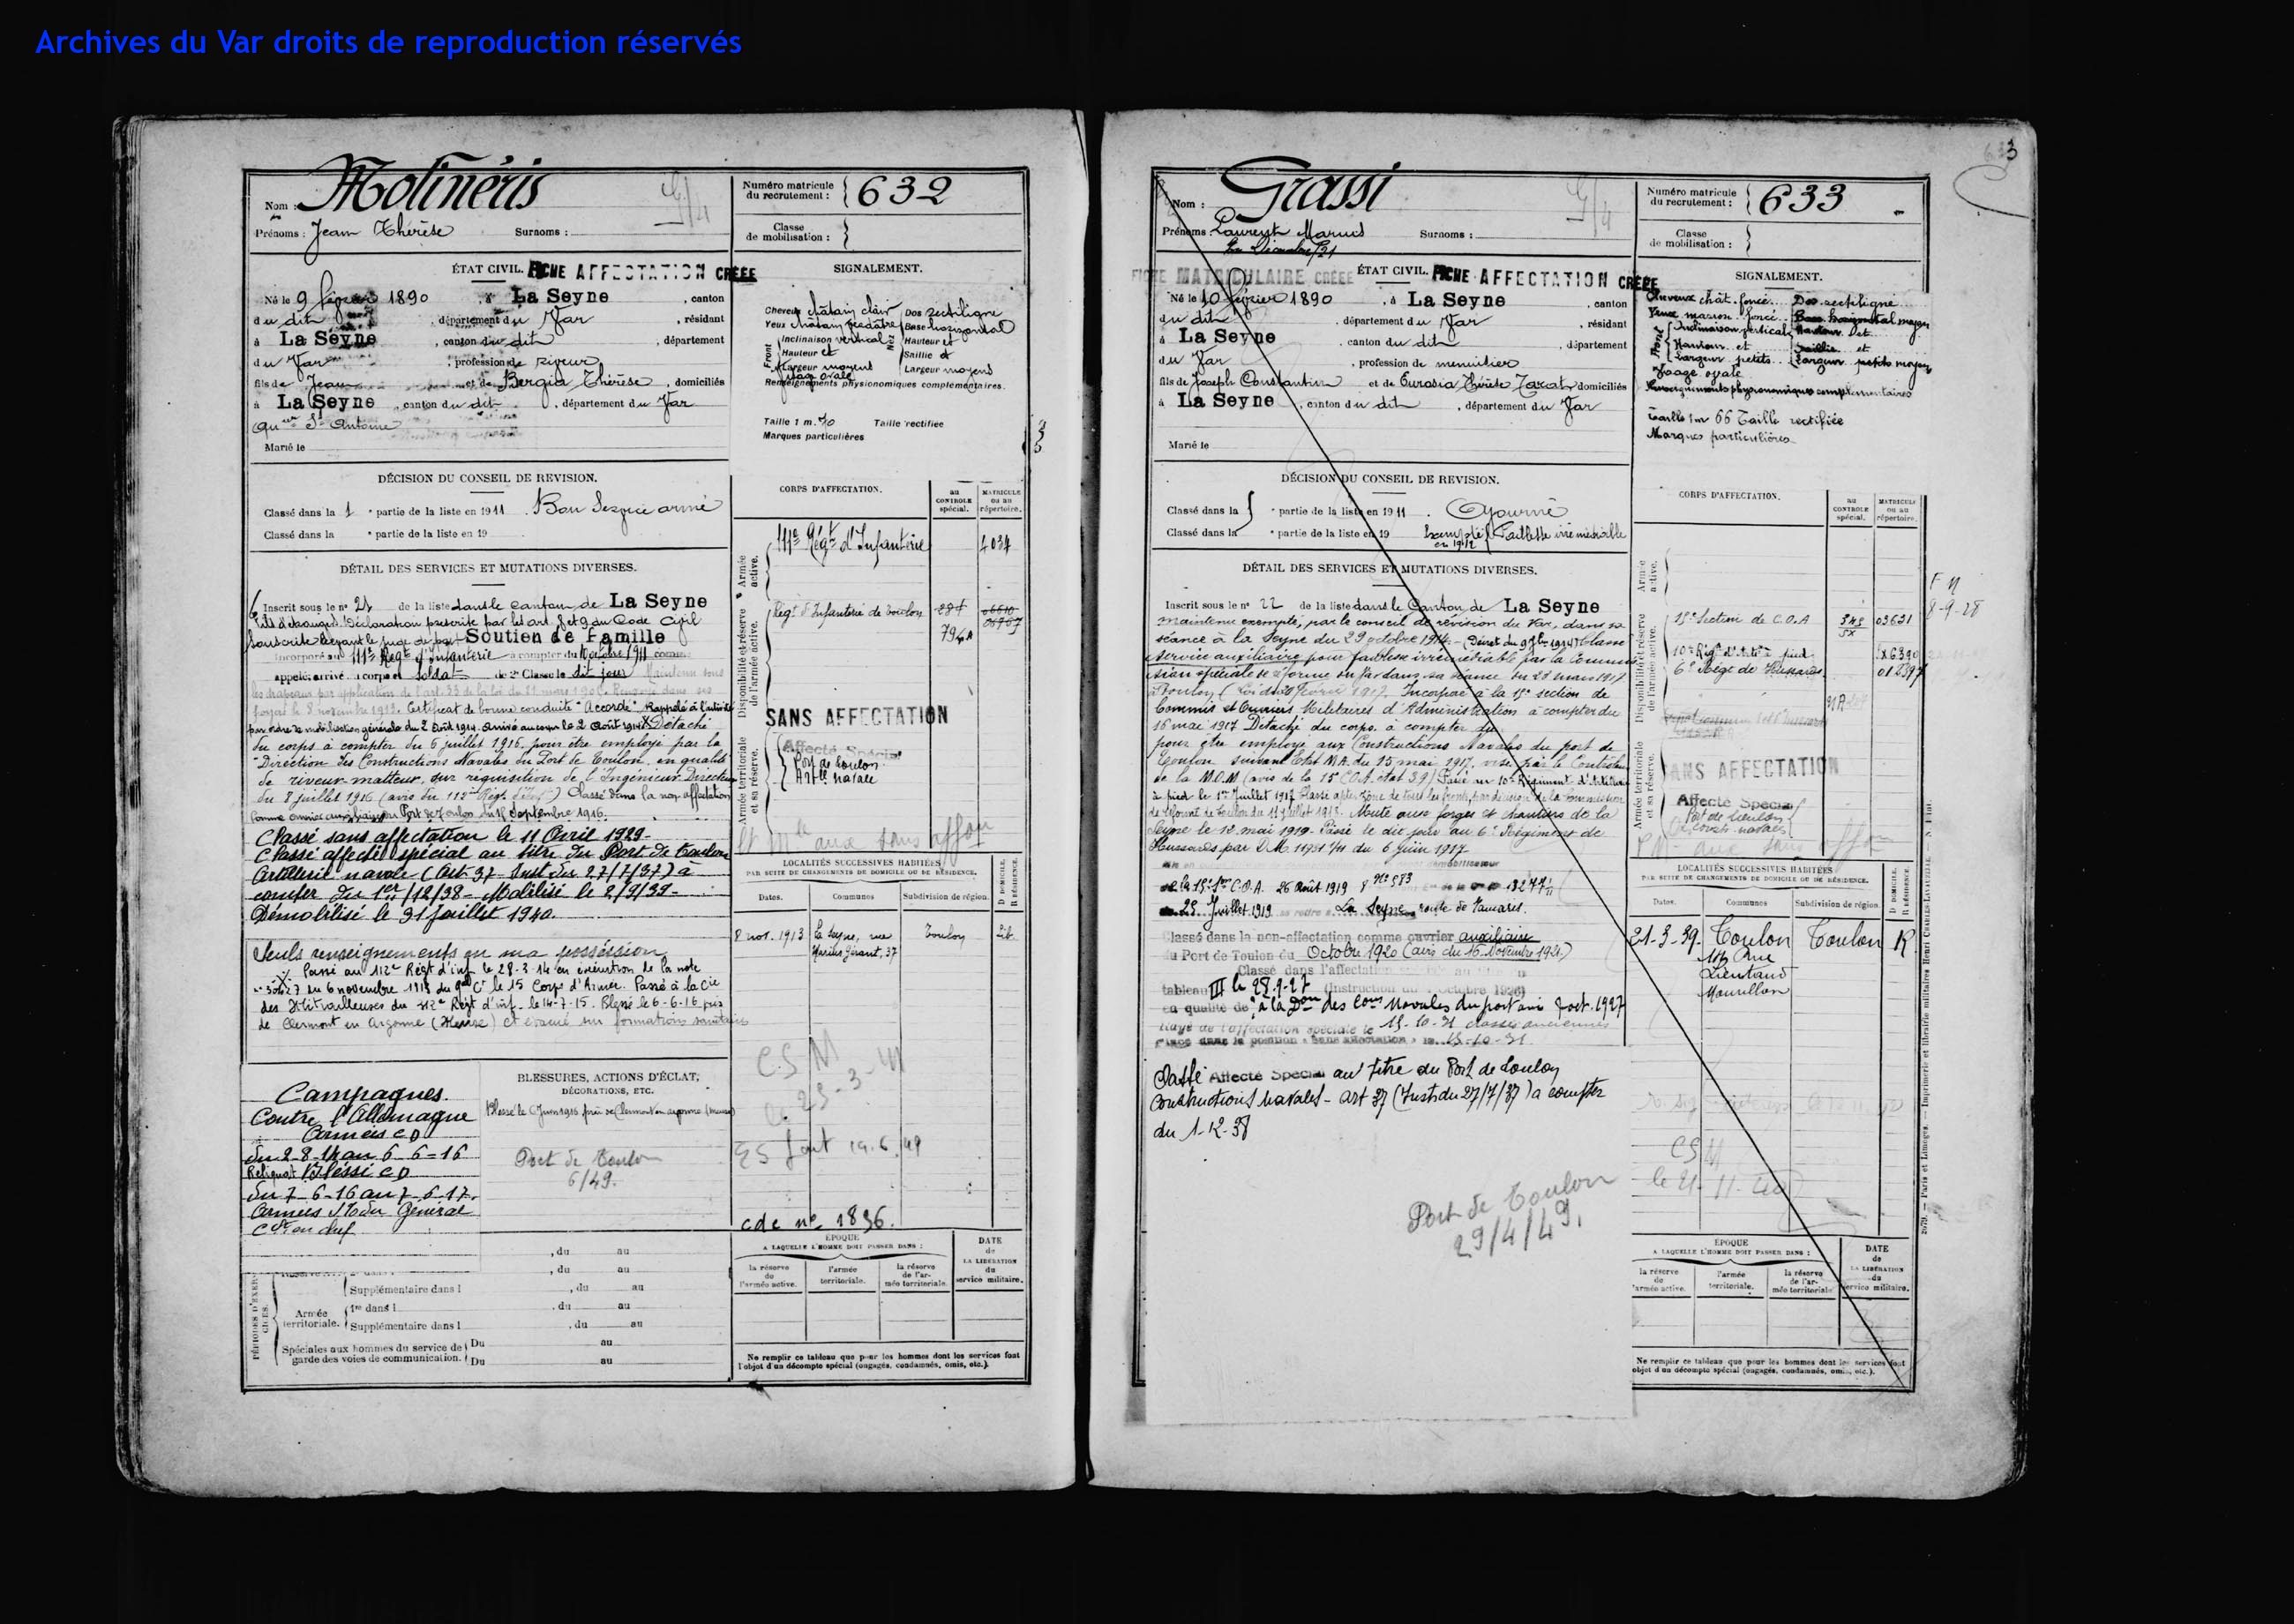 Archives du Var droits de reproduction réservés
Nom : Molinéris
Prénoms : Jean Thérèse Surnoms :
Numéro matricule du recrutement : 632
Classe de mobilisation :
ÉTAT CIVIL. FICHE AFFECTATION CRÉÉE
Né le 9 février 1890, à La Seyne, canton
du dit, département du Var, résidant
à La Seyne, canton du dit, département
du Var, profession de riveur
fils de Jean et de Bergia Thérèse, domiciliés
à La Seyne, canton du dit, département du Var
qu er St Antoine
Marié le
SIGNALEMENT.
Cheveux châtain clair Dos rectiligne
Yeux châtain verdâtre Base horizontal
Front Inclinaison vertical Nez Hauteur et
Hauteur et Saillie et
Largeur moyens Largeur moyens
Visage ovale
Renseignements physionomiques complémentaires.
Taille 1 m. 70 Taille rectifiée
Marques particulières
DÉCISION DU CONSEIL DE REVISION.
Classé dans la 1 e partie de la liste en 1911. Bon Service armé
Classé dans la e partie de la liste en 19
DÉTAIL DES SERVICES ET MUTATIONS DIVERSES.
Inscrit sous le n° 21 de la liste dans le canton de La Seyne
Fils d'étranger. Déclaration prescrite par les art. 8 et 9 du Code Civil
souscrite devant le juge de paix Soutien de Famille
Incorporé au 111e Régt d'Infanterie à compter du 10 octobre 1911 comme
appelé, arrivé au corps et soldat de 2e Classe le dit jour Maintenu sous
les drapeaux par application de l'art. 33 de la loi du 21 mars 1905. Renvoyé dans ses
foyers le 8 novembre 1913. Certificat de bonne conduite "Accordé". Rappelé à l'activité
par ordre de mobilisation générale du 2 Août 1914. Arrivé au corps le 2 Août 1914 Détaché
du corps à compter du 6 juillet 1916 pour être employé par la
Direction des Constructions Navales du Port de Toulon, en qualité
de riveur-matteur, sur requisition de l'Ingénieur Directeur
du 8 juillet 1916 (avis du 112e Régt d'Inf.) Classé dans la non affectation
comme ouvrier auxiliaire au Port de Toulon du septembre 1916.
Classé sans affectation le 11 Avril 1929-
Classé affecté spécial au titre du Port de Toulon
Artillerie navale (Art 37 Inst du 27/7/37) à
compter du 1er/12/38 - Mobilisé le 2/9/39-
Démobilisé le 31 Juillet 1940
Seuls renseignements en ma possession
Passé au 112e Régt d'inf le 28-3-14 en exécution de la note
du 6 novembre 1913 du Gal Ct le 15 Corps d'Armée. Passé à la Cie
des Mitrailleuses du 112e Régt d'inf. le 14-7-15. Blessé le 6-6-16 près
de Clermont en Argonne (Meuse) et évacué sur formations sanitaires
CORPS D'AFFECTATION.
au CONTROLE spécial.
MATRICULE ou au répertoire.
Armée active.
111e Régt d'Infanterie 4034
Disponibilité et réserve de l'armée active.
Régt d'Infanterie de Toulon
SANS AFFECTATION
Armée territoriale et sa réserve.
Affecté Spécial
Port de Toulon
Artie navale
LOCALITÉS SUCCESSIVES HABITÉES
PAR SUITE DE CHANGEMENTS DE DOMICILE OU DE RÉSIDENCE.
Dates. Communes Subdivision de région. D DOMICILE. R RÉSIDENCE.
8 nov. 1913 La Seyne, rue Toulon
Marius Giraud, 37
C.S.M
25-3-41
14.6.49
cdc n° 1836.
Campagnes.
Contre l'Allemagne
Armées CD
du 2-8-14 au 6-6-16
Reliquat Blessé CD
du 7-6-16 au 7-6-17.
Armées
en chef
BLESSURES, ACTIONS D'ÉCLAT,
DÉCORATIONS, ETC.
Blessé le 6 Juin 1916 près de Clermont en argonne (Meuse)
Port de Toulon
6/49.
, du au
, du au
PÉRIODES D'EXERCICES.
Supplémentaire dans l , du au
Armée territoriale. 1re dans l , du au
Supplémentaire dans l , du au
Spéciales aux hommes du service de garde des voies de communication. Du au
Du au
ÉPOQUE
A LAQUELLE L'HOMME DOIT PASSER DANS :
la réserve de l'armée active.
l'armée territoriale.
la réserve de l'armée territoriale.
DATE de LA LIBÉRATION du service militaire.
Ne remplir ce tableau que pour les hommes dont les services font
l'objet d'un décompte spécial (engagés, condamnés, omis, etc.).
633
Nom : Grassi
Prénoms Laurent Marius Surnoms :
Numéro matricule du recrutement : 633
Classe de mobilisation :
FICHE MATRICULAIRE CRÉÉE ÉTAT CIVIL. FICHE AFFECTATION CRÉÉE
Né le 10 février 1890, à La Seyne, canton
du dit, département du Var, résidant
à La Seyne, canton du dit, département
du Var, profession de menuisier
fils de Joseph Constantin et de Eurosia Thérèse, domiciliés
à La Seyne, canton du dit, département du Var
Marié le
SIGNALEMENT.
Cheveux chât. foncé. Dos rectiligne
Yeux marron foncé. Base horizontal moyen
Front Inclinaison vertical Hauteur et
Hauteur et Saillie et
Largeur petits. Largeur petits moyen
Visage ovale
Renseignements physionomiques complémentaires
Taille 1m 66 Taille rectifiée
Marques particulières
DÉCISION DU CONSEIL DE REVISION.
Classé dans la e partie de la liste en 1911. Ajourné
Classé dans la e partie de la liste en 19 Exempté Faiblesse irrémédiable
en 1912
DÉTAIL DES SERVICES ET MUTATIONS DIVERSES.
Inscrit sous le n° 22 de la liste dans le Canton de La Seyne
maintenu exempté, par le conseil de révision du Var, dans sa
séance à la Seyne du 29 octobre 1914. - (Décret du 9 7bre 1914) Classé
service auxiliaire pour faiblesse irrémédiable par la Commis
sion spéciale de réforme du Var dans sa séance du 28 mars 1917
Toulon (Loi du 20 février 1917. Incorporé à la 15e section de
Commis et Ouvriers Militaires d'Administration à compter du
16 mai 1917 Détaché du corps, à compter du
pour être employé aux Constructions Navales du port de
Toulon suivant Etat M.A. du 15 mai 1917, visé par le Contrôle
de la M.O.M (avis de la 15e C.O.A. état 39) Passé au 10e Régiment d'Artillerie
à pied le 1er Juillet 1917 Classé apte zône de tous les fronts, par décision de la Commission
de Réforme de Toulon du Juillet 1918. Muté aux forges et chantiers de la
Seyne le 12 mai 1919. Passé le dit jour au 6e Régiment de
Hussards par D.M. du 6 Juin 1917
26 Août 1919
25 Juillet 1919 La Seyne route de Tamaris.
Classé dans la non-affectation comme ouvrier auxiliaire
du Port de Toulon du Octobre 1920 (avis du 16 Novembre 1921)
Classé dans l'affectation
tableau III le 28.9-27
en qualité de à la Don des Cons Navales du port
Rayé de l'affectation spéciale le 15-10-31 classes anciennes
Placé dans la position "Sans affectation" le 15-10-31
Classé Affecté Spécial au titre du Port de Toulon
Constructions navales - art 37 (Inst du 27/7/37) à compter
du 1-12-38
Port de Toulon
29/4/49.
CORPS D'AFFECTATION.
au CONTROLE spécial.
MATRICULE ou au répertoire.
Armée active.
Disponibilité et réserve de l'armée active.
15e Section de C.O.A 03631
10e Régt d'Artie à pied
6e Régt de Hussards
8-9-28
Armée territoriale et sa réserve.
SANS AFFECTATION
Affecté Spécial
Port de Toulon
Const. navales
LOCALITÉS SUCCESSIVES HABITÉES
PAR SUITE DE CHANGEMENTS DE DOMICILE OU DE RÉSIDENCE.
Dates. Communes Subdivision de région. D DOMICILE. R RÉSIDENCE.
21-3-39. Toulon Toulon R
Rue
Lieutaud
Mourillon
CSM
le 21-11-40
ÉPOQUE
A LAQUELLE L'HOMME DOIT PASSER DANS :
la réserve de l'armée active.
l'armée territoriale.
la réserve de l'armée territoriale
DATE de LA LIBÉRATION du service militaire.
Ne remplir ce tableau que pour les hommes dont les services font
objet d'un décompte spécial (engagés, condamnés, omis, etc.).
Paris et Limoges. — Imprimerie et librairie militaires Henri CHARLES-LAVAUZELLE.